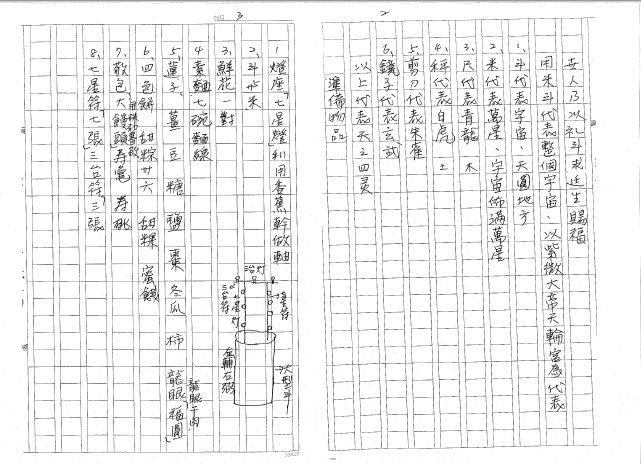 2
世人乃以礼斗求延生賜福
用米斗代表整個宇宙、以紫微大帝天輪富為代表
1.斗代表宇宙、天圓地方
2.米代表萬星、宇宙佈滿萬星
3.尺代表青龍 木
4.秤代表白虎 土
5.剪刀代表朱雀
6.鏡子代表玄武
以上代表天之四灵
準備物品
NO. 3
1.燈座「七星燈」利用香蕉幹做軸
2.斗、米
3.鮮花一對
4.素麵七碗 麵線
5.薑子、薑 豆 糖 鹽 棗 冬瓜 柿 龍眼「福圓」
龍眼干肉
6.四色餅 甜粽廿六 甜粿 蜜餞
7.散包、大饅頭 壽龜 壽桃
8.七星符「七張」三台符「三張」
七星灯
三台符
大型斗